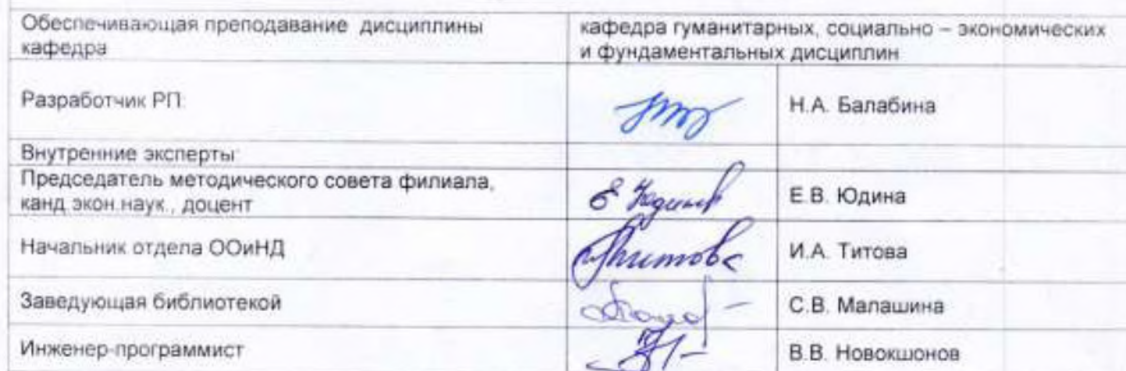 Обеспечивающая преподавание дисциплины кафедра гуманитарных, социально – экономических
кафедра и фундаментальных дисциплин
Разработчик РП: Н.А. Балабина
Внутренние эксперты:
Председатель методического совета филиала,
канд.экон.наук., доцент Е.В. Юдина
Начальник отдела ООиНД И.А. Титова
Заведующая библиотекой С.В. Малашина
Инженер-программист В.В. Новокшонов